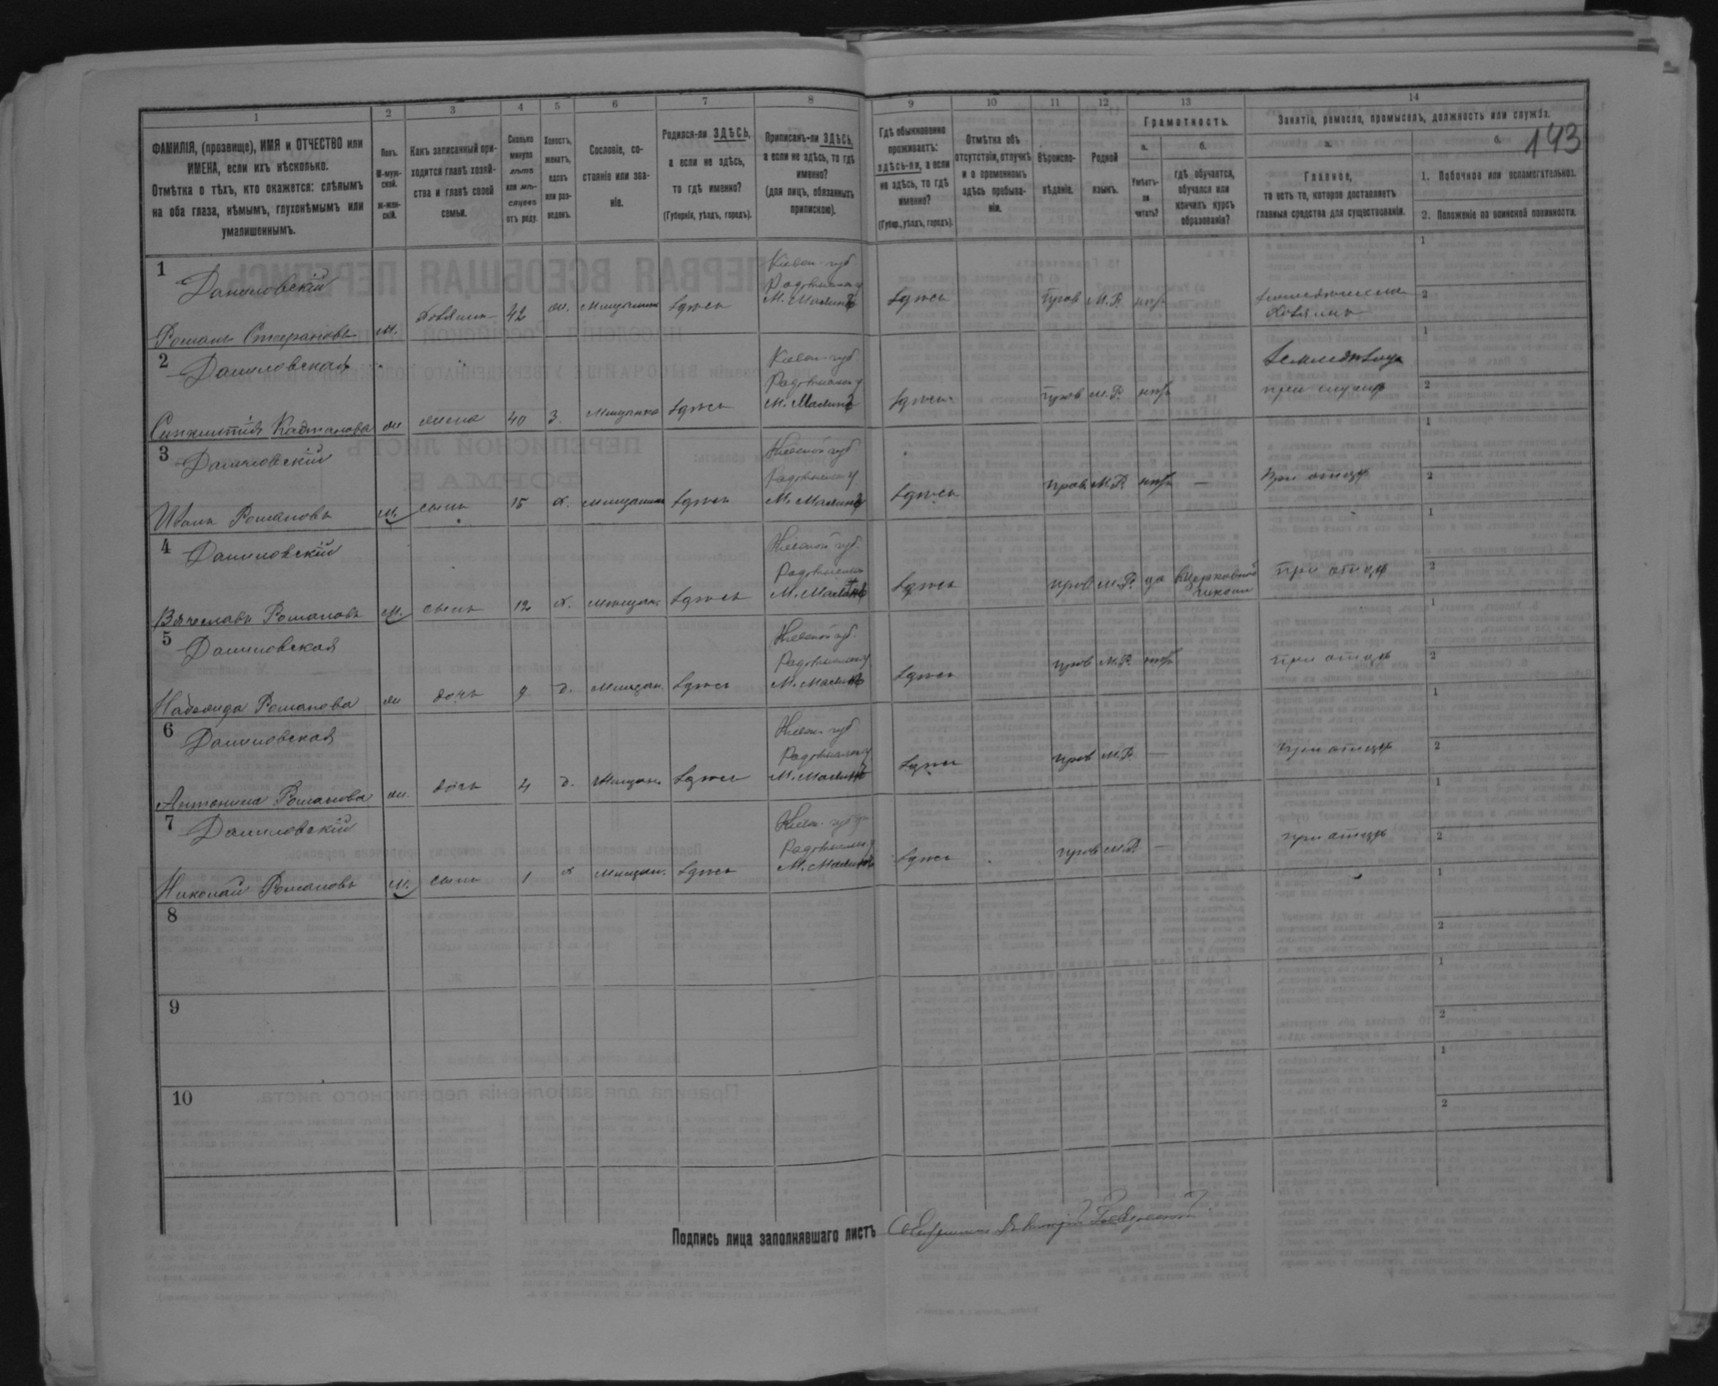 143
1 2 3 4 5 6 7 8 9 10 11 12 13 14
ФАМИЛІЯ, (прозвище), ИМЯ и ОТЧЕСТВО или
ИМЕНА, если ихъ нѣсколько.
Отмѣтка о тѣхъ, кто окажется: слѣпымъ
на оба глаза, нѣмымъ, глухонѣмымъ или
умалишеннымъ.
Полъ.
М-муж-
ской.
Ж-жен-
скій.
Какъ записанный при-
ходится главѣ хозяй-
ства и главѣ своей
семьи.
Сколько
минуло
лѣтъ
или мѣ-
сяцевъ
отъ роду.
Холостъ,
женатъ,
вдовъ
или раз-
веденъ.
Сословіе, со-
стояніе или зва-
ніе.
Родился-ли ЗДѢСЬ,
а если не здѣсь,
то гдѣ именно?
(Губернія, уѣздъ, городъ).
Приписанъ-ли ЗДѢСЬ,
а если не здѣсь, то гдѣ
именно?
(для лицъ, обязанныхъ
припискою).
Гдѣ обыкновенно
проживаетъ:
здѣсь-ли, а если
не здѣсь, то гдѣ
именно?
(Губер., уѣздъ, городъ).
Отмѣтка объ
отсутствіи, отлучкѣ
и о временномъ
здѣсь пребыва-
ніи.
Вѣроиспо-
вѣданіе.
Родной
языкъ.
Грамотность.
а.
Умѣетъ-
ли
читать?
б.
гдѣ обучается,
обучался или
кончилъ курсъ
образованія?
Занятіе, ремесло, промыселъ, должность или служба.
а.
Главное,
то есть то, которое доставляетъ
главныя средства для существованія.
б.
1. Побочное или вспомогательное.
2. Положеніе по воинской повинности.
1
Даниловскій
Романъ Стефановъ М. хозяинъ 42 ж. Мѣщанинъ Здѣсь
Кіевск. губ
Радомысл. у
М. Малинъ
Здѣсь Прав М.Р. нѣтъ
хозяинъ
1
2
2
Даниловская
ж жена 40 З. Мѣщанка Здѣсь
Кіевск. губ
Радомысл. у
М. Малинъ
Здѣсь Прав М.Р. нѣтъ
при мужѣ
1
2
3
Даниловскій
Иванъ Романовъ М. сынъ 15 х. мѣщанинъ Здѣсь
Кіевской губ
Радомысл. у
М. Малинъ
Здѣсь прав М.Р. нѣтъ —
при отцѣ
1
2
4
Даниловскій
Вячеславъ Романовъ М. сынъ 12 х. Мѣщан. Здѣсь
Кіевской губ.
Радомысл.
М. Малинъ
Здѣсь прав М.Р. да
при отцѣ
1
2
5
Даниловская
Надежда Романова ж дочь 9 д. Мѣщан. Здѣсь
Кіевской губ.
Радомысл. у
М. Малинъ
Здѣсь прав М.Р. нѣтъ
при отцѣ
1
2
6
Даниловская
Антонина Романова ж. дочь 4 д. Мѣщан. Здѣсь
Кіевск. губ
Радомысл. у
М. Малинъ
Здѣсь прав М.Р. —
при отцѣ
1
2
7
Даниловскій
Николай Романовъ М. сынъ 1 х Мѣщан. Здѣсь
Кіевск. губ
Радомысл. у
М. Малинъ
Здѣсь прав М.Р. —
при отцѣ
1
2
8
1
2
9
1
2
10
1
2
Подпись лица заполнявшаго листъ